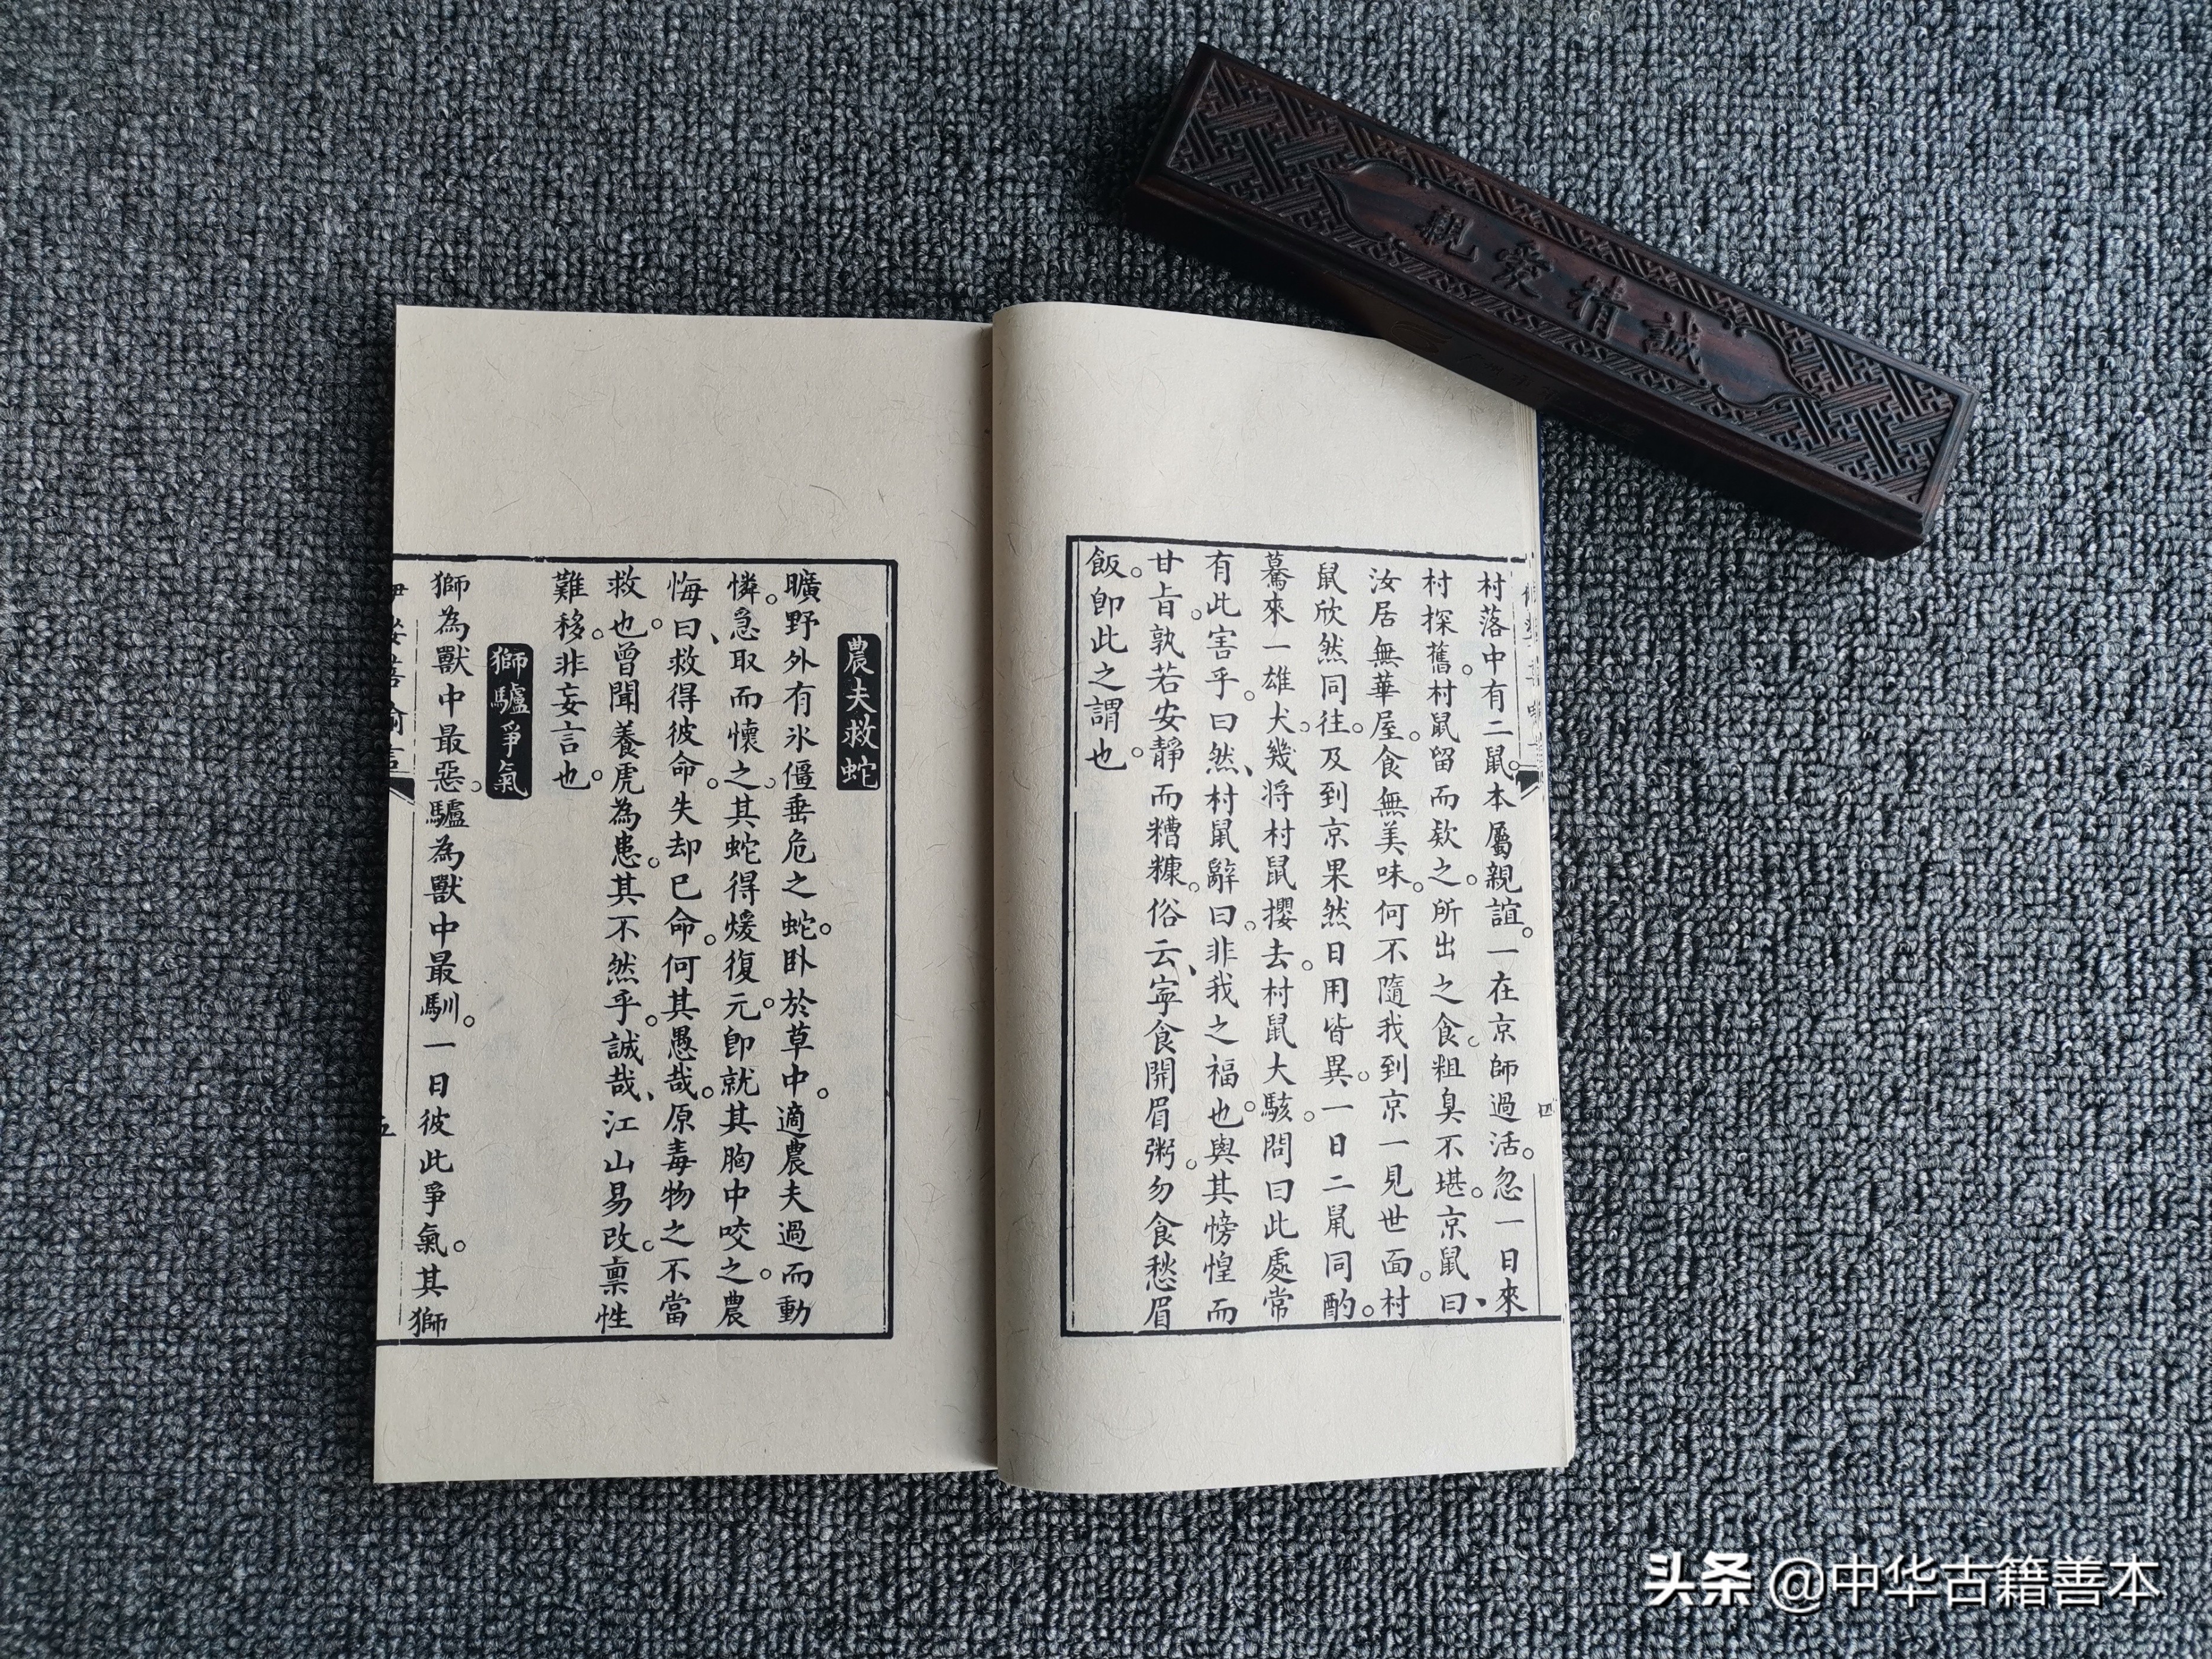 親愛精誠
村落中有二鼠。本屬親誼。一在京師過活。忽一日來
村探舊。村鼠留而欵之。所出之食。粗臭不堪。京鼠曰、
汝居無華屋。食無美味。何不隨我到京一見世面。村
鼠欣然同往。及到京果然日用皆異。一日二鼠同酌。
驀來一雄犬。幾將村鼠攫去。村鼠大駭。問曰此處常
有此害乎。曰然、村鼠辭曰。非我之福也。與其徬惶而
甘旨。孰若安靜而糟糠。俗云、寧食開眉粥。勿食愁眉
飯。即此之謂也。
四
農夫救蛇
曠野外有氷僵垂危之蛇。卧於草中。適農夫過而動
憐。急取而懷之。其蛇得煖復元。即就其胸中咬之。農
悔曰、救得彼命。失却已命。何其愚哉。原毒物之不當
救也。曾聞養虎為患。其不然乎。誠哉、江山易改。禀性
難移。非妄言也。
獅驢爭氣
獅為獸中最惡。驢為獸中最馴。一日彼此爭氣。其獅
五
头条 @中华古籍善本